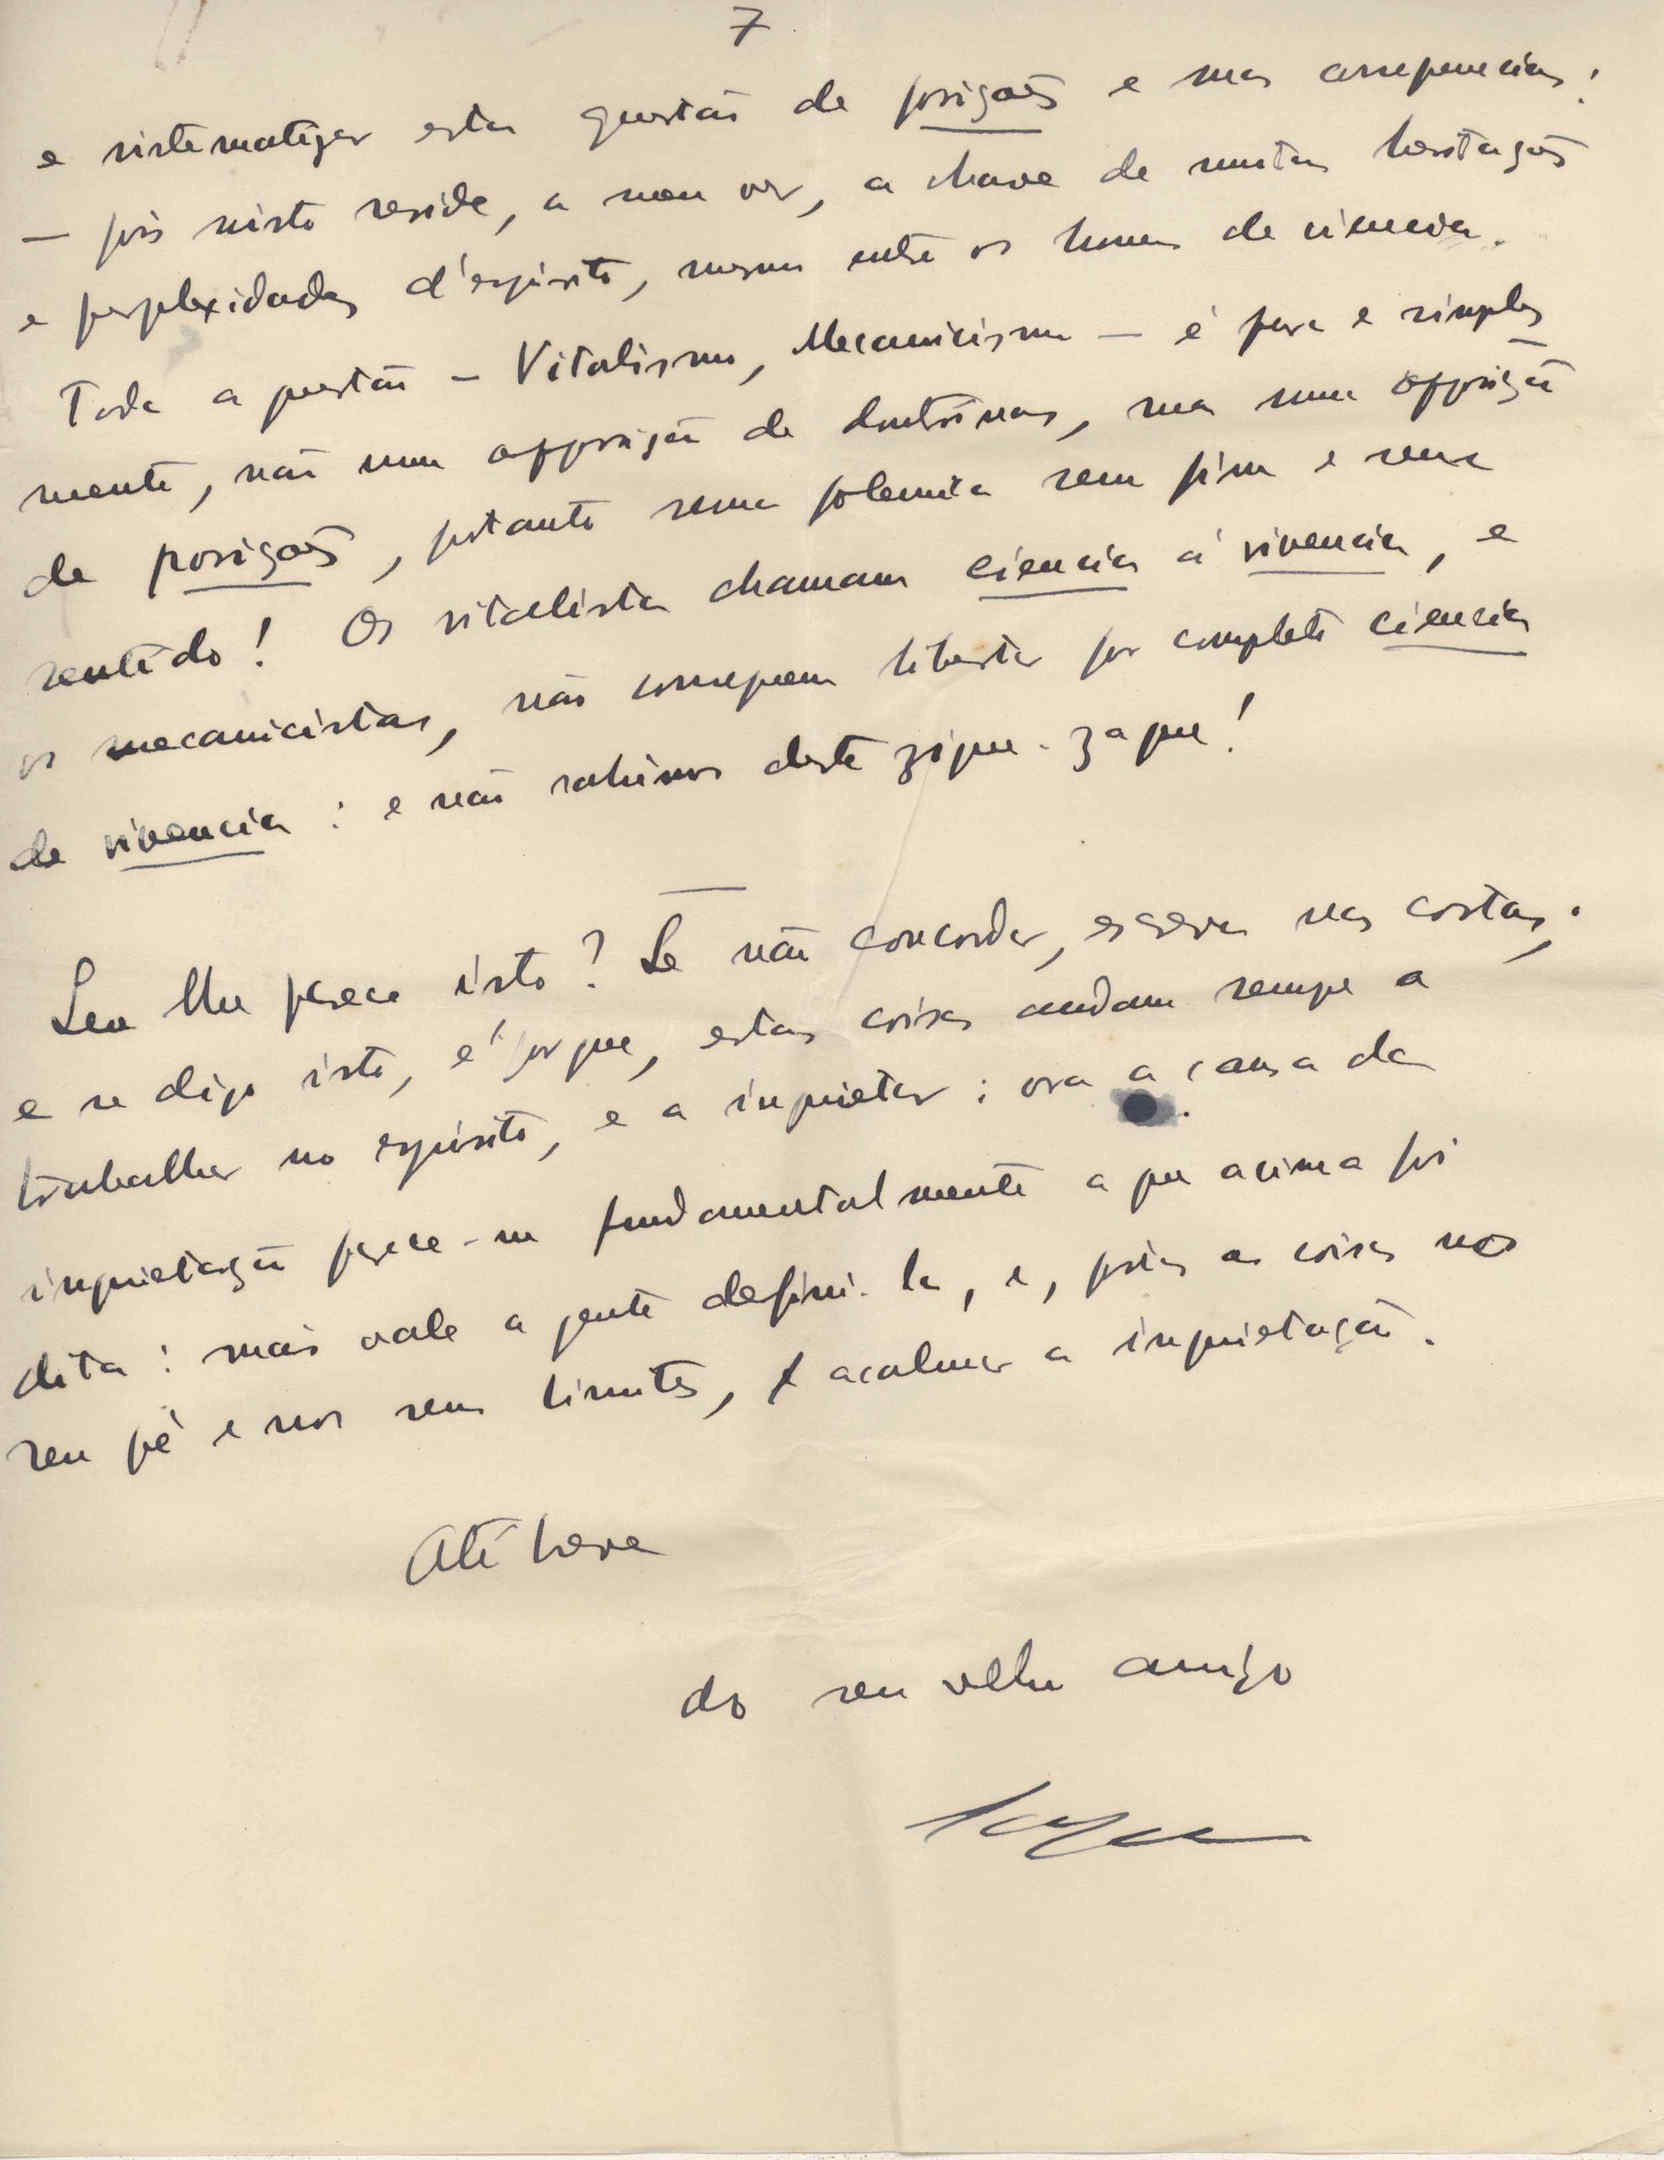 7
e sistematizar esta questão de posições e suas consequencias:
— pois nisto reside, a meu ver, a chave de muitas hesitações
e perplexidades d'espirito, mesmo entre os homens de ciencia.
Toda a questão – Vitalismo, Mecanicismo – é pura e simples-
mente, não uma opposição de doutrinas, mas uma opposição
de posições, portanto sem polemica sem fim e sem
sentido! Os vitalistas chamam ciencia á vivencia, e
os mecanicistas, não conseguem libertar por completo ciencia
de vivencia: e não sahimos deste zigue-zague!
lhe parece isto? Se não concordar, escreva nas costas;
e se digo isto, é porque, estas coisas andam sempre a
trabalhar no espirito, e a inquietar: ora a causa da
inquietação parece-me fundamentalmente a que acima foi
dita: mais vale a gente defini-la, e, postas as coisas no
seu pé e nos seus limites, acalmar a inquietação.
Até breve
do seu velho amigo